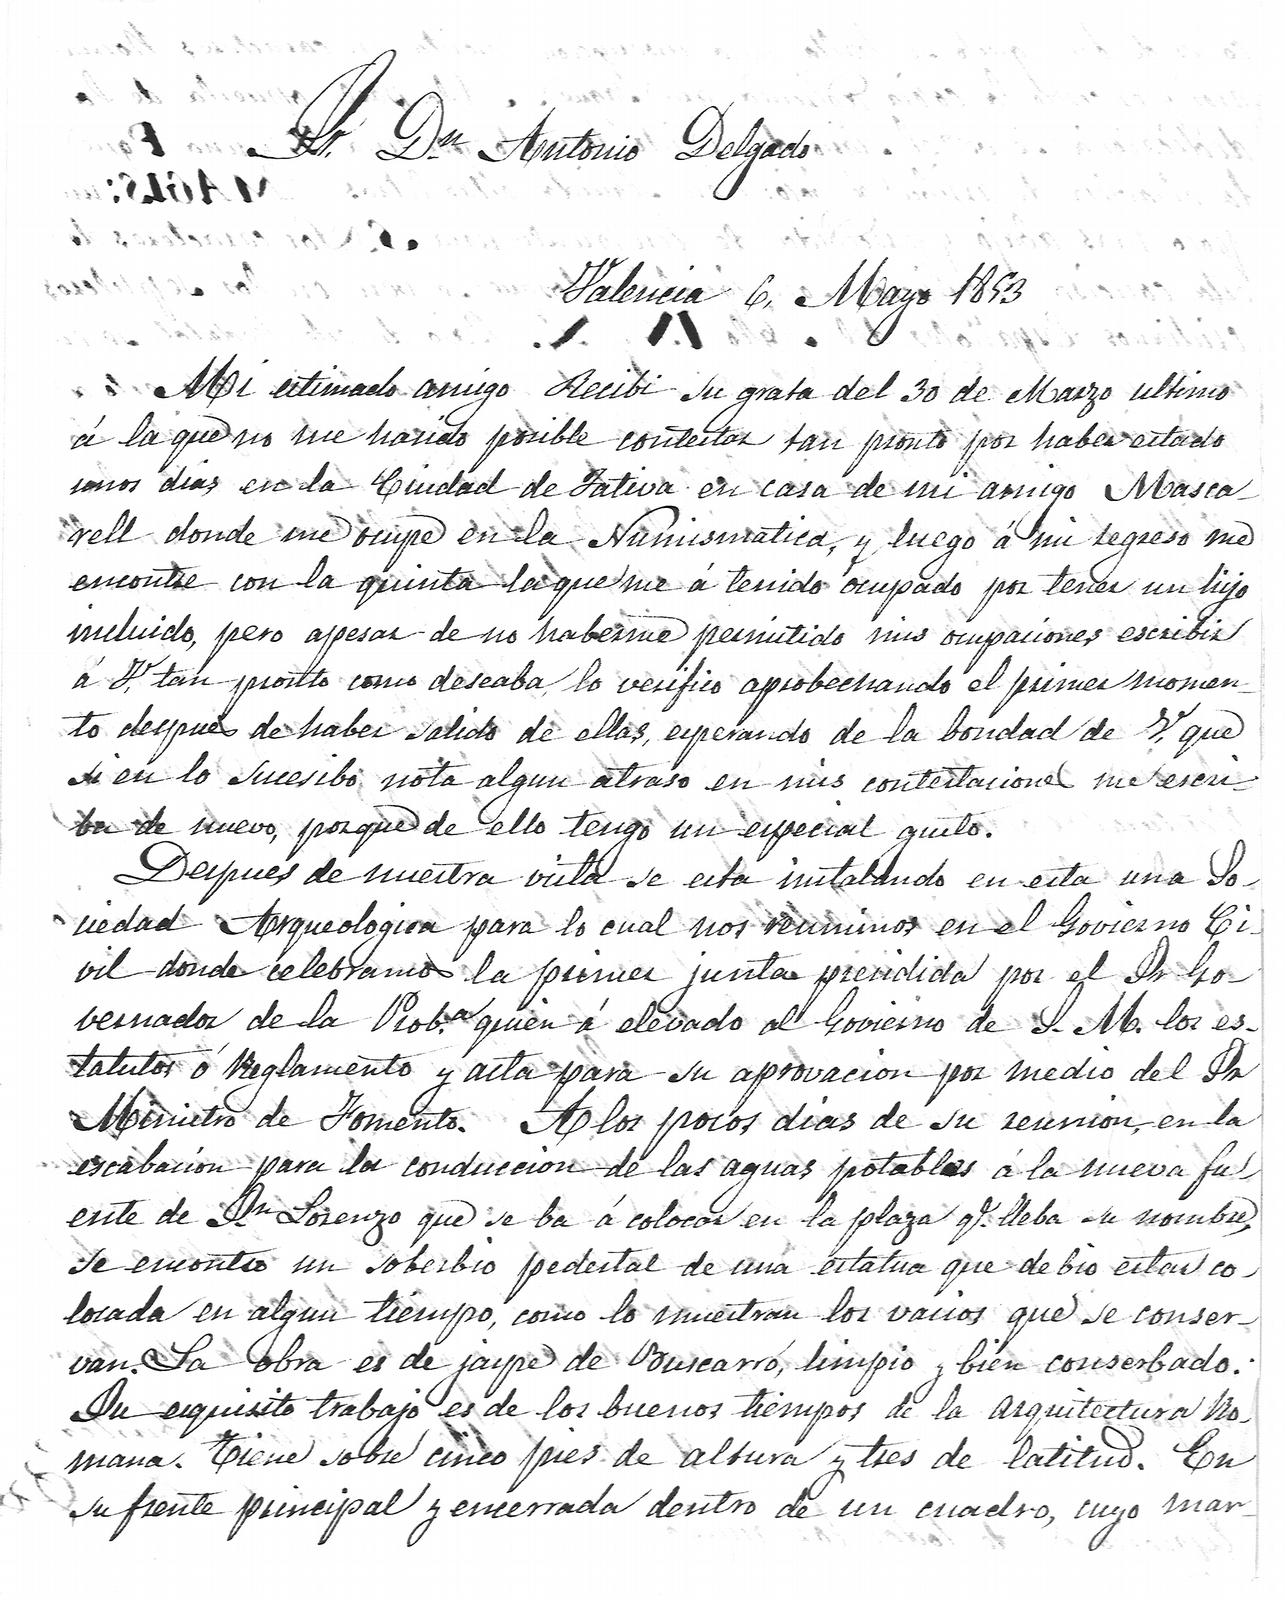 Sr. Dn Antonio Delgado
Valencia 6, Mayo 1853
Mi estimado amigo Recibi su grata del 30 de Marzo ultimo
á la que no me ha sido posible contestar tan pronto por haber estado
unos dias en la Ciudad de Jativa en casa de mi amigo Masca-
rell donde me ocupe en la Numismatica, y luego á mi regreso me
encontre con la quinta la que me á tenido ocupado por tener un hijo
incluido, pero apesar de no haberme permitido mis ocupaciones escribir
á V. tan pronto como deseaba, lo verifico aprobechando el primer momen-
to despues de haber salido de ellas, esperando de la bondad de V. que
si en lo sucesibo nota algun atraso en mis contestaciones me escri-
ba de nuevo, porque de ello tengo un especial gusto.
Despues de nuestra vista se esta instalando en esta una So-
ciedad Arqueologica para lo cual nos reunimos en el Govierno Ci-
vil donde celebramos la primer junta presidida por el Sr Go-
vernador de la Prob.a quien á elevado al Govierno de S. M. los es-
tatutos ó Reglamento y acta para su aprovacion por medio del Sr
Ministro de Fomento. A los pocos dias de su reunion, en la
escabacion para la conduccion de las aguas potables á la nueva fu-
ente de Sn Lorenzo que se ba á colocar en la plaza qe. lleba su nombre,
se encontro un soberbio pedestal de una estatua que debio estar co-
locada en algun tiempo, como lo muestran los vacios que se conser-
van. La obra es de jaspe de Buscarró, limpio y bien conserbado.
Su esquisito trabajo es de los buenos tiempos de la arquitectura Ro-
mana. Tiene sobre cinco pies de altura y tres de latitud. En
su frente principal y encerrada dentro de un cuadro, cuyo mar-